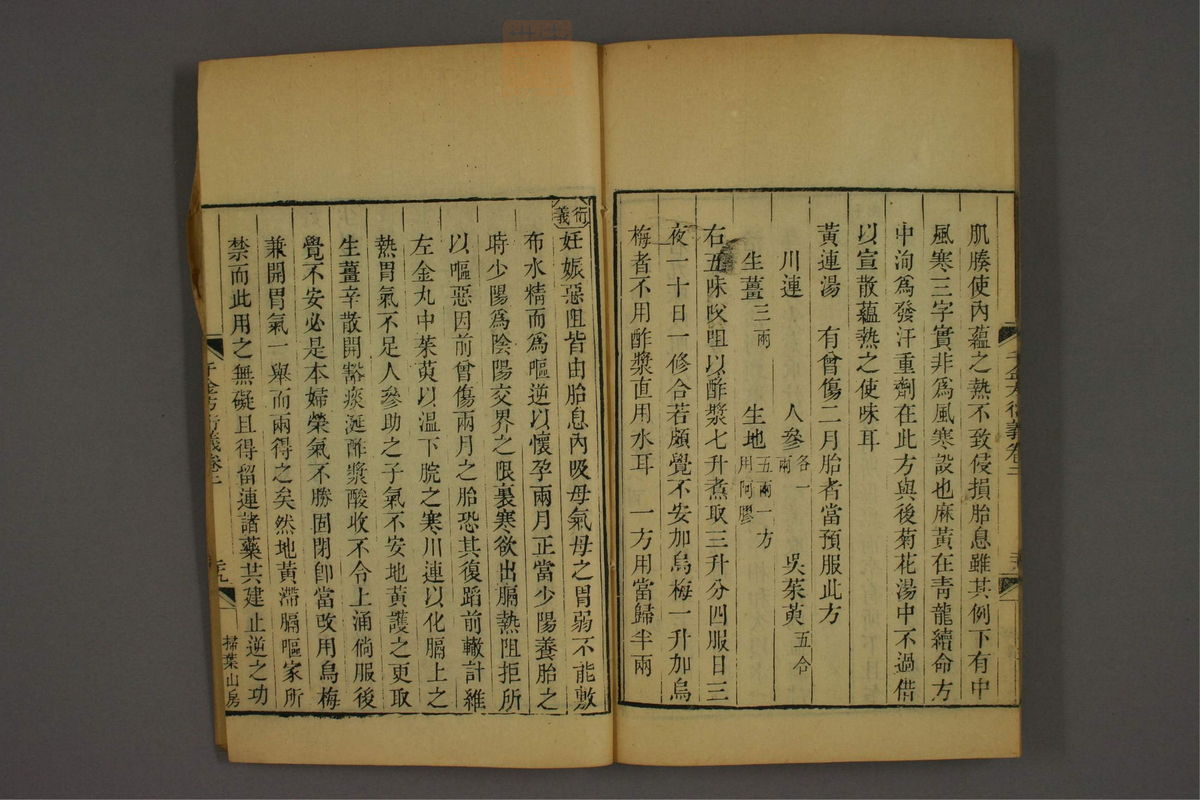 肌腠使內蘊之熱不致侵損胎息雖其例下有中
風寒三字實非為風寒設也麻黃在青龍續命方
中洵為發汗重劑在此方與後菊花湯中不過借
以宣散蘊熱之使味耳
黃連湯　有曾傷二月胎者當預服此方
川連　人參各一兩　吳茱萸五合
生薑三兩　生地五兩一方用阿膠
右五味㕮咀以酢漿七升煮取三升分四服日三
夜一十日一修合若頗覺不安加烏梅一升加烏
梅者不用酢漿直用水耳　一方用當歸半兩
衍義
妊娠惡阻皆由胎息內吸母氣母之胃弱不能敷
布水精而為嘔逆以懷孕兩月正當少陽養胎之
時少陽為陰陽交界之限裏寒欲出膈熱阻拒所
以嘔惡因前曾傷兩月之胎恐其復蹈前轍計雖
左金丸中茱萸以溫下脘之寒川連以化膈上之
熱胃氣不足人參助之子氣不安地黃護之更取
生薑辛散開豁痰涎酢漿酸收不令上涌倘服後
覺不安必是本婦榮氣不勝固閉卽當改用烏梅
兼開胃氣一舉而兩得之矣然地黃滯膈嘔家所
禁而此用之無礙且得留連諸藥共建止逆之功
千金方衍義卷二
掃葉山房